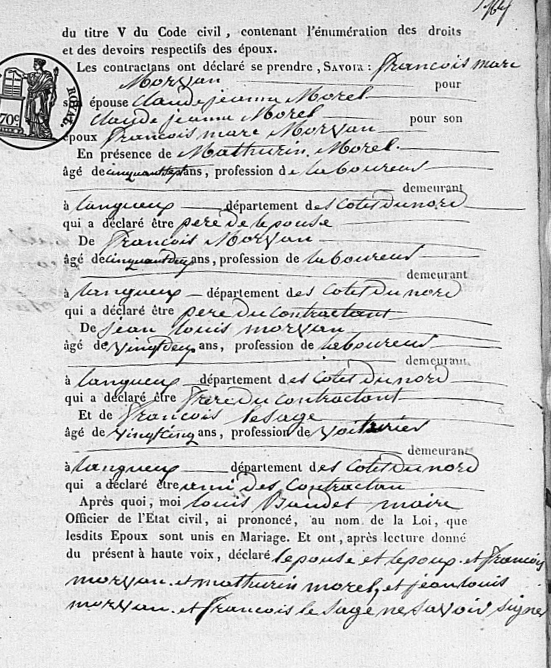 du titre V du Code civil, contenant l'énumération des droits
et des devoirs respectifs des époux.
Les contractans ont déclaré se prendre, SAVOIR : francois marc
Morvan pour
épouse claude jeanne Morel
claude jeanne Morel pour son
époux francois marc Morvan
En présence de Mathurin Morel
âgé de ans, profession de laboureus
demeurant
à Langueux département des cotes du nord
qui a déclaré être pere de lepouse
De francois Morvan
âgé de ans, profession de laboureus
demeurant
à Langueux département des cotes du nord
qui a déclaré être pere du contractant
De jean louis morvan
âgé de vingt deux ans, profession de laboureus
demeurant
à Langueux département des cotes du nord
qui a déclaré être frere du contractant
Et de francois lesage
âgé de vingt cinq ans, profession de voiturier
demeurant
à Langueux département des cotes du nord
qui a déclaré être ami des contractan
Après quoi, moi louis maire
Officier de l'Etat civil, ai prononcé, au nom de la Loi, que
lesdits Epoux sont unis en Mariage. Et ont, après lecture donné
du présent à haute voix, déclaré lepouse et lepoux et francois
morvan et mathurin morel, et jean louis
morvan et francois le sage ne savoir signer
70c.
ROYAL